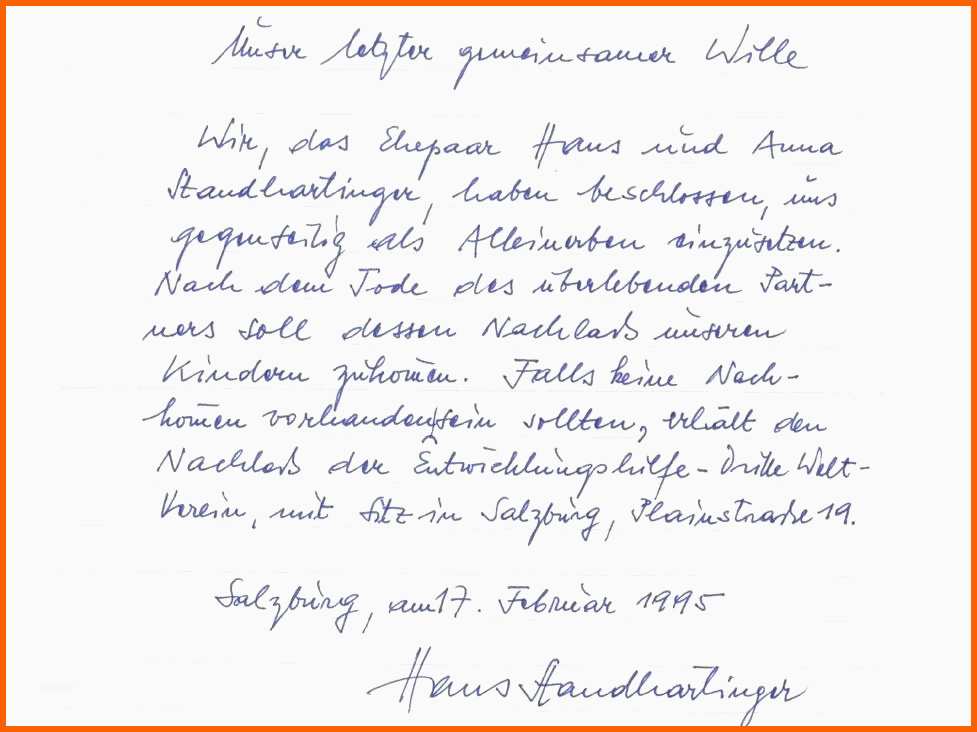 Unser letzter gemeinsamer Wille
Wir, das Ehepaar Hans und Anna
Standhartinger, haben beschlossen, uns
gegenseitig als Alleinerben einzusetzen.
Nach dem Tode des überlebenden Part-
ners soll dessen Nachlaß unseren
Kindern zukom̄en. Falls keine Nach-
kom̄en vorhanden sein sollten, erhält den
Nachlaß der Entwicklungshilfe-Dritte Welt-
Verein, mit Sitz in Salzburg, Plainstraße 19.
Salzburg, am 17. Februar 1995
Hans Standhartinger